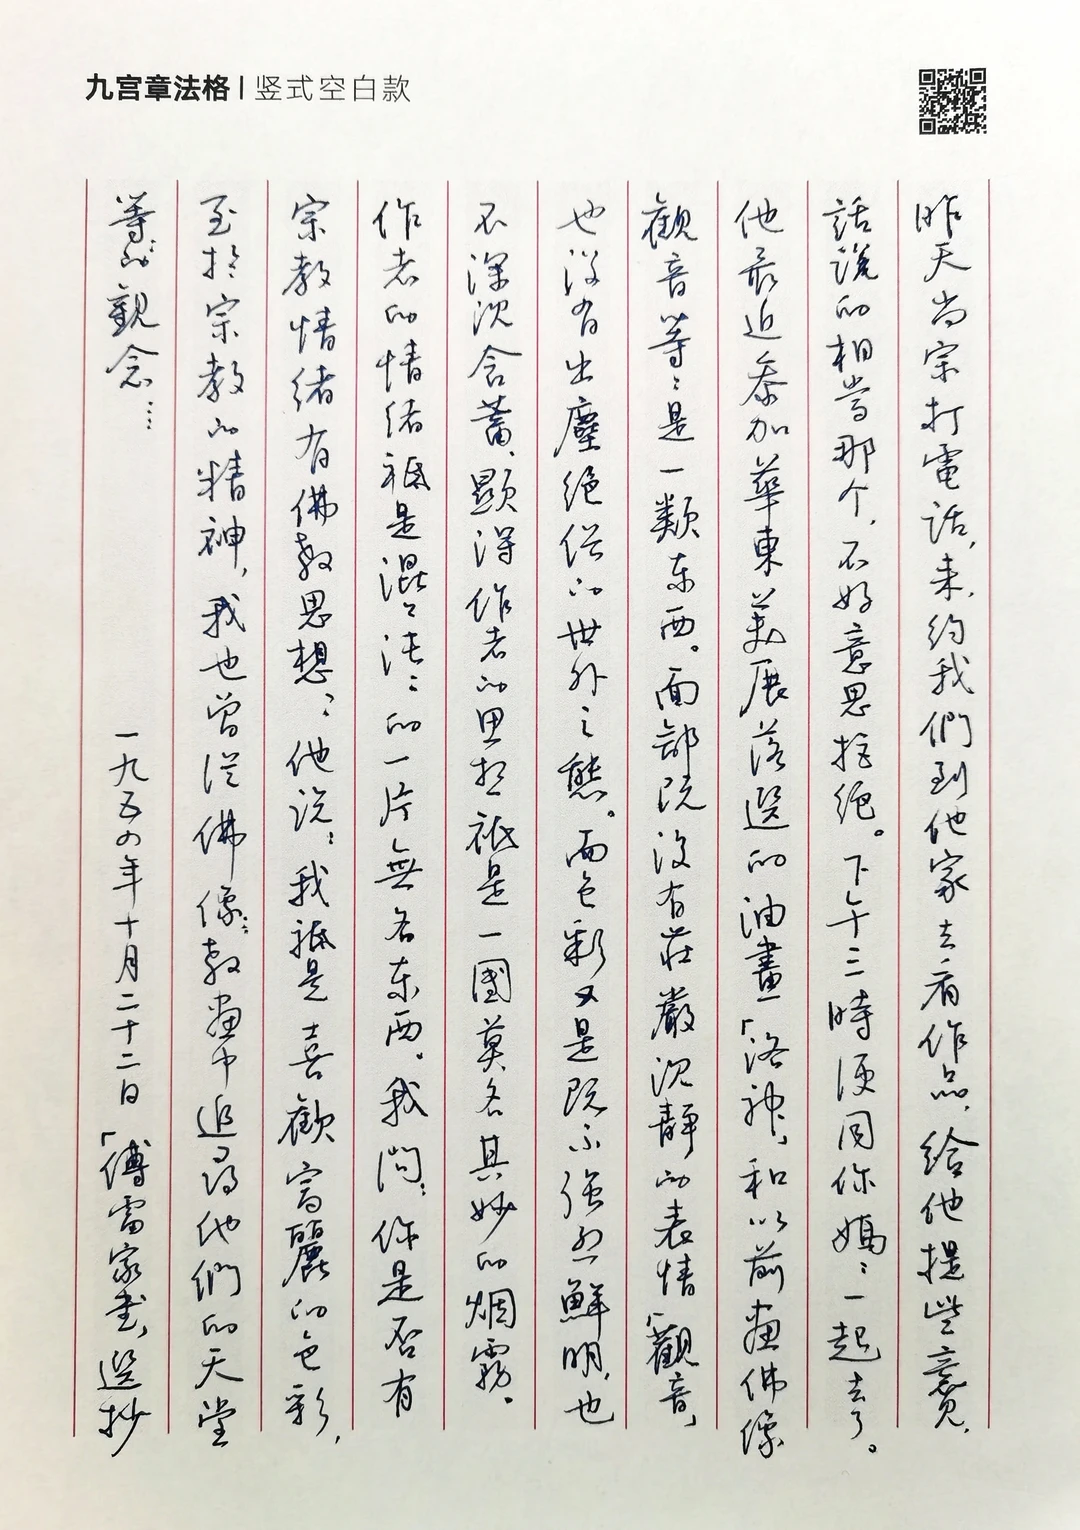 九宫章法格 | 竖式空白款
昨天尚宗打電話,来,约我們到他家去看作品,給他提些意見,
話說的相當那个,不好意思拒绝。下午三時便同你媽:一起去了。
他最近参加華東美展落選的油畫「洛神」,和以前畫佛像
觀音等:是一類东西。面部既没有莊嚴沉静的表情「觀音」
也没有出塵絕俗的世外之態。而色彩又是既不强烈鮮明,也
不深沉含蓄,顯得作者的思想祗是一團莫名其妙的烟霧。
作者的情绪祗是混:沌:的一片無名东西。我問:你是否有
宗教情绪有佛教思想:他说:我祗是喜歡富麗的色彩,
至於宗教的精神,我也曾從佛像:教畫中追尋他們的天堂
等的觀念…… 一九五四年十月二十二日「傅雷家書」選抄